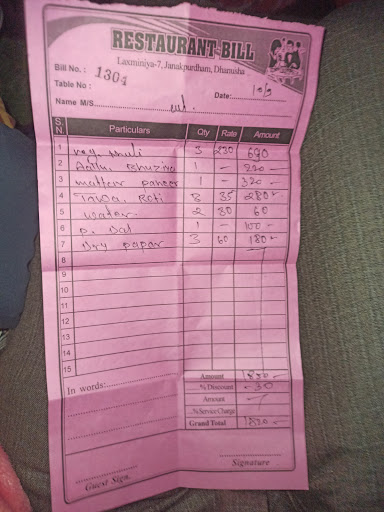 RESTAURANT BILL
Laxminiya-7, Janakpurdham, Dhanusha
Bill No. : 1304
Table No :
Date: 10/9
Name M/S.
S.N. Particulars Qty Rate Amount
1 veg thali 3 230 690
2 Aallu 1 - 220
3 matter paneer 1 - 320
4 Tawa Roti 8 35 280
5 water 2 30 60
6 p. Dal 1 - 100
7 Dry papar 3 60 180
8
9
10
11
12
13
14
15
In words:
Amount 1850
% Discount - 30
Amount
% Service Charge
Grand Total 1820
Guest Sign.
Signature